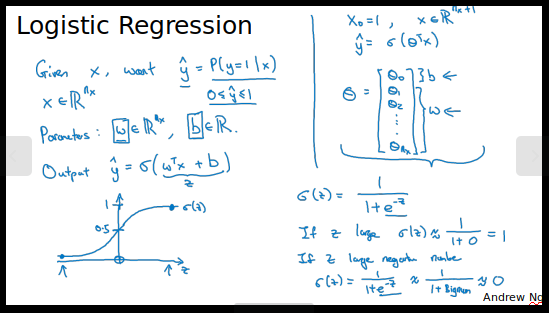 Logistic Regression
Given x, want ŷ = P(y=1|x)
x ∈ ℝ^{n_x}
0 ≤ ŷ ≤ 1
Parameters: w ∈ ℝ^{n_x}, b ∈ ℝ.
Output ŷ = σ(w^T x + b)
z
1
0.5
σ(z)
z
X_0 = 1, x ∈ ℝ^{n_x+1}
ŷ = σ(θ^T x)
θ = [θ_0 θ_1 θ_2 ⋮ θ_{n_x}] } b ← } w ←
σ(z) = 1 / (1+e^{-z})
If z large σ(z) ≈ 1 / (1+0) = 1
If z large negative number
σ(z) = 1 / (1+e^{-z}) ≈ 1 / (1+Bignum) ≈ 0
Andrew Ng